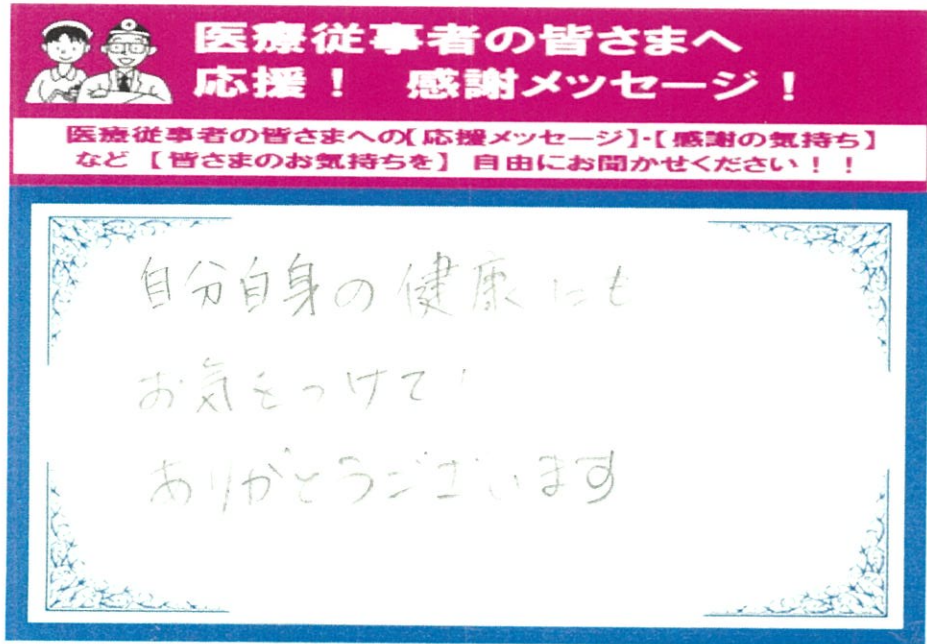 医療従事者の皆さまへ
応援！　感謝メッセージ！
医療従事者の皆さまへの【応援メッセージ】・【感謝の気持ち】
など【皆さまのお気持ちを】自由にお聞かせください！！
自分自身の健康にも
お気をつけて！
ありがとうございます